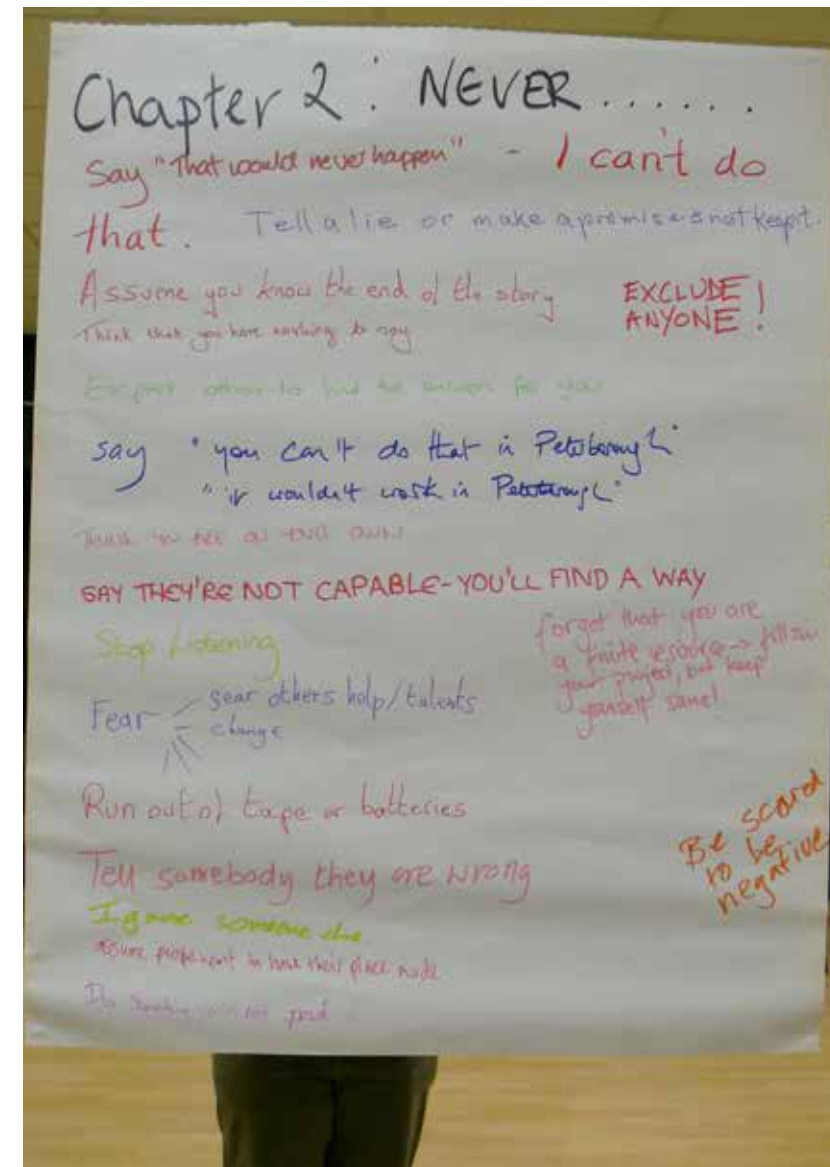 Chapter 2 : NEVER ......
Say "That would never happen" - I can't do
that. Tell a lie or make a promise & not keep it.
Assume you know the end of the story
EXCLUDE ANYONE!
Think that you have nothing to say
Expect others to find the answers for you
say "you can't do that in Peterborough"
"it wouldn't work in Peterborough"
Think you are on your own
SAY THEY'RE NOT CAPABLE - YOU'LL FIND A WAY
Stop Listening
forget that you are
a finite resource → follow
your project, but keep
yourself sane!
Fear - fear others help/talents
- change
Run out of tape or batteries
Be scared
to be
negative
Tell somebody they are wrong
Ignore someone else
assume people want to have their place made
Do